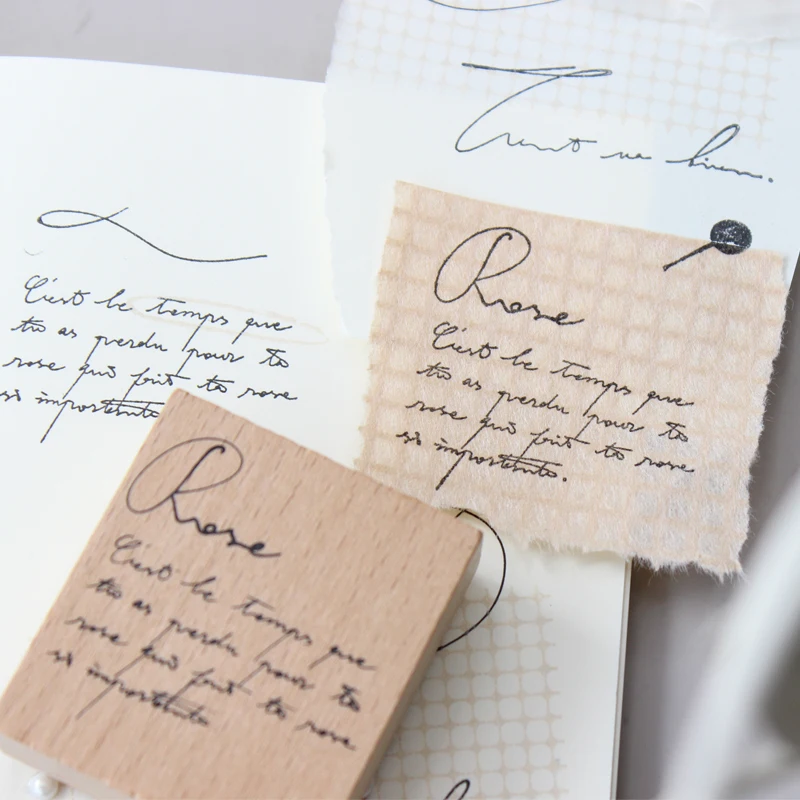 Tout va bien.
C'est le temps que
tu as perdu pour ta
rose qui fait ta rose
si importante
Rose
C'est le temps que
tu as perdu pour ta
rose qui fait ta rose
si importante.
Rose
C'est le temps que
tu as perdu pour ta
rose qui fait ta rose
si importante